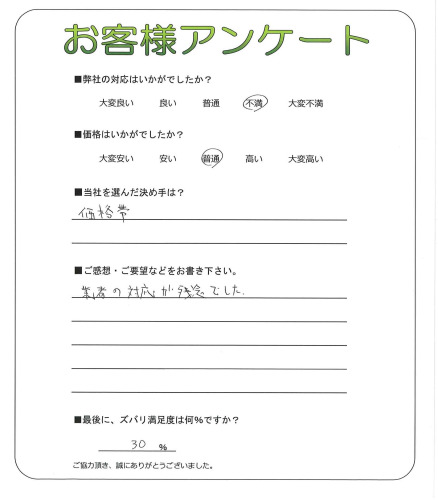 お客様アンケート
■弊社の対応はいかがでしたか?
大変良い 良い 普通 不満 大変不満
■価格はいかがでしたか?
大変安い 安い 普通 高い 大変高い
■当社を選んだ決め手は?
価格帯
■ご感想・ご要望などをお書き下さい。
業者の対応が残念でした.
■最後に、ズバリ満足度は何%ですか?
30 %
ご協力頂き、誠にありがとうございました。